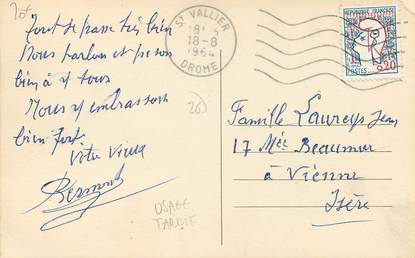 20f
Tout se passe très bien
Nous parlons et pensons
bien à vous
Nous vous embrassons
bien fort
Votre vieux
Bernard
ST VALLIER
18-8
1964
DROME
REPUBLIQUE FRANÇAISE
0,20
POSTES
Famille Laureys Jean
17 Beaumur
à Vienne
Isère
USAGE
TARDIF